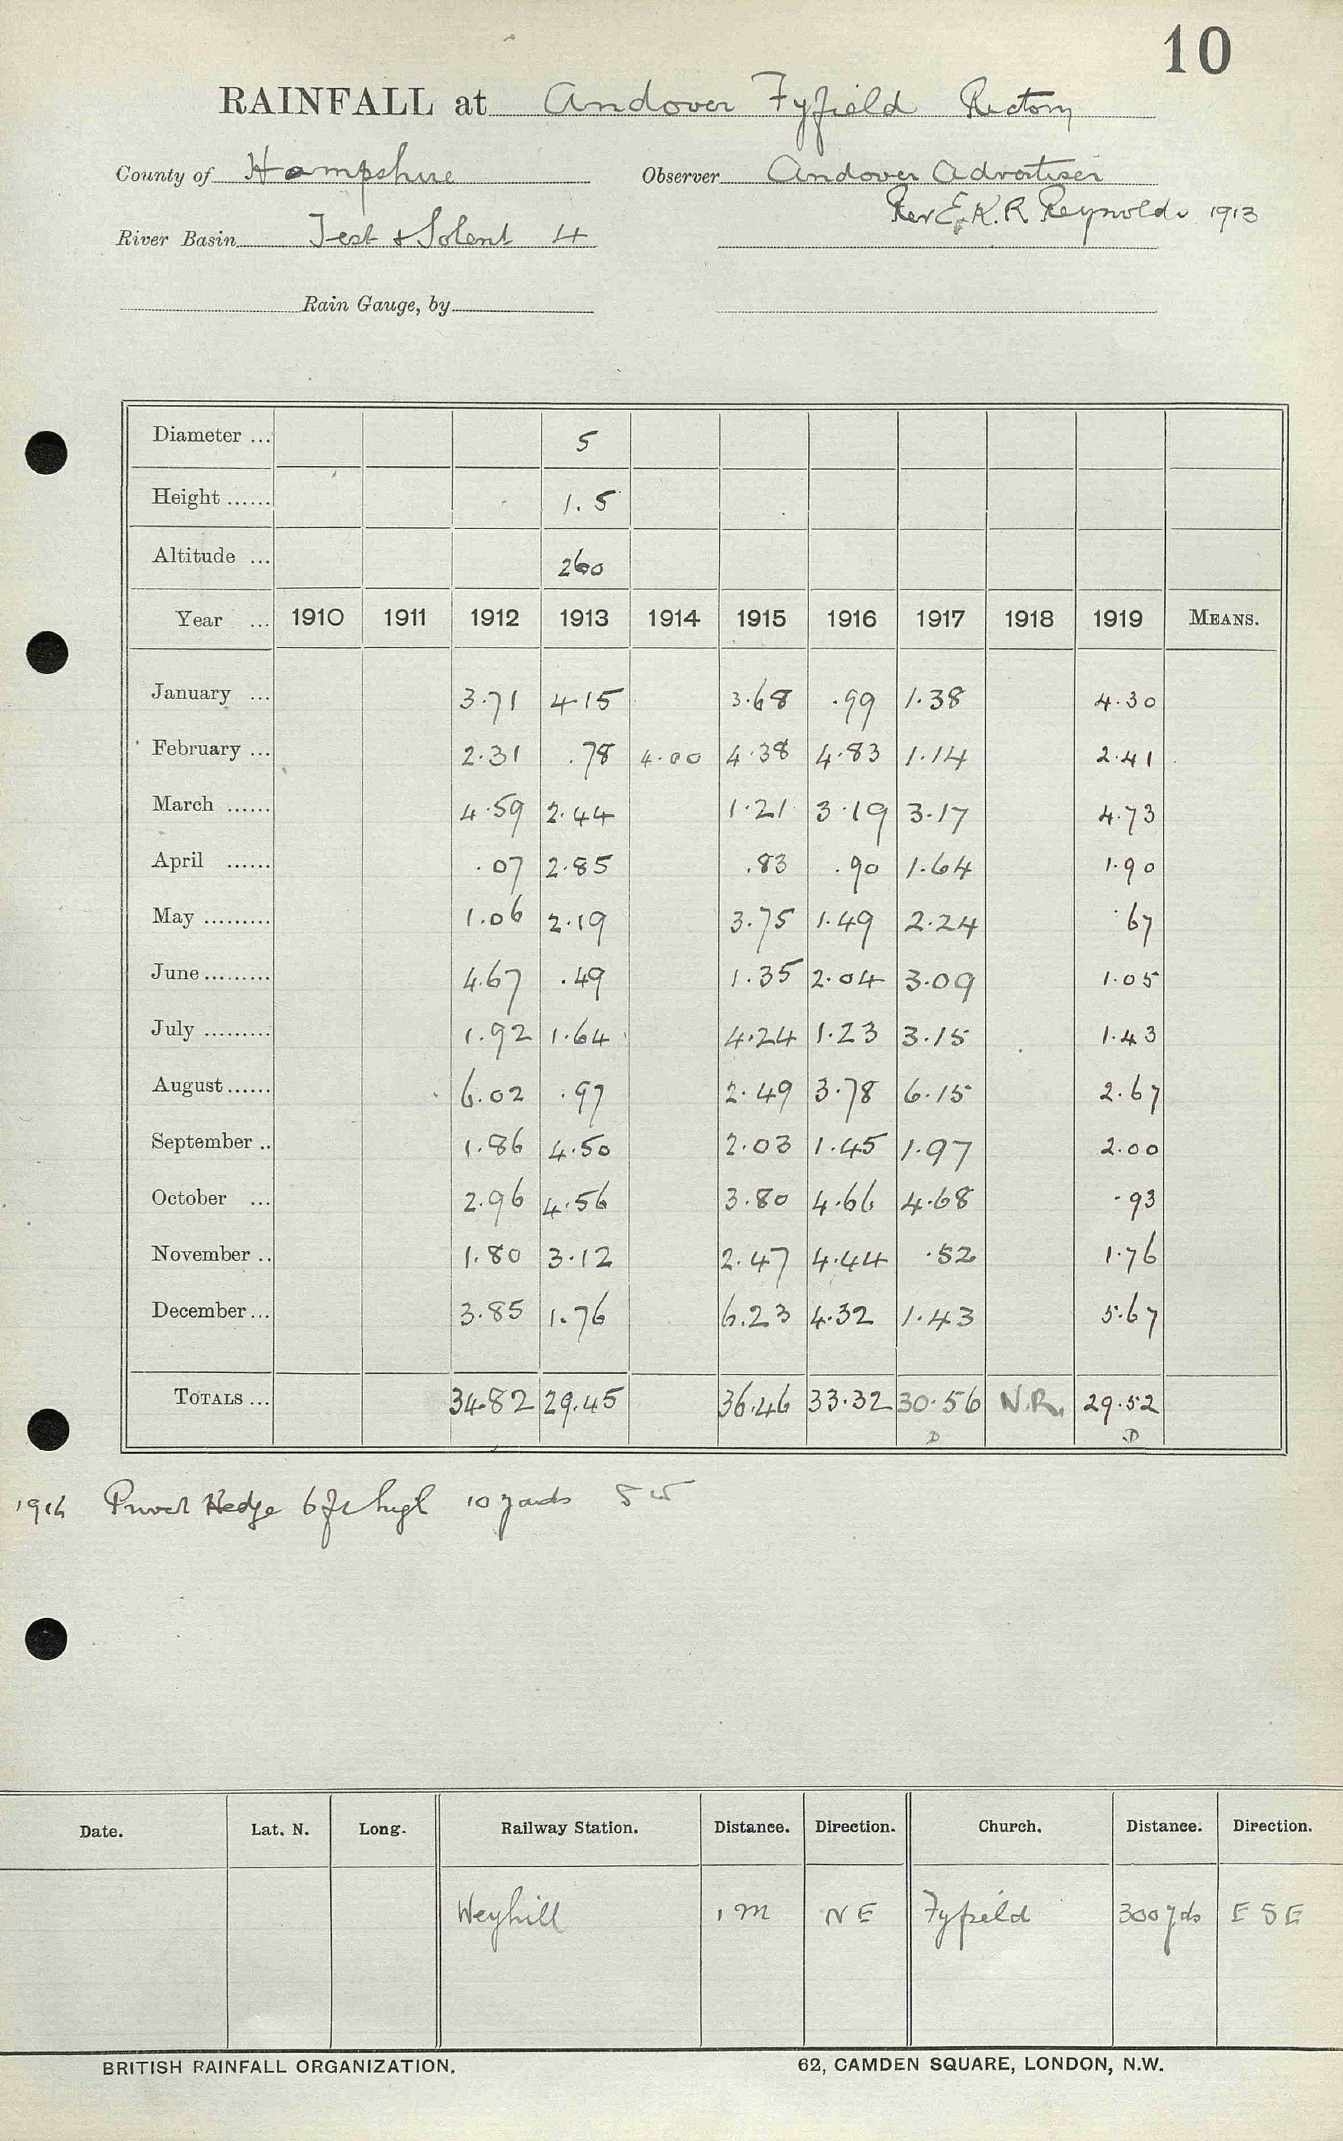 10
RAINFALL at Andover Fyfield Rectory
County of Hampshire Observer Andover Advertiser
Rev E.K.R Reynolds 1913
River Basin Test & Solent 4
Rain Gauge, by
Diameter ... 5
Height ...... 1.5
Altitude ... 260
Year ... 1910 1911 1912 1913 1914 1915 1916 1917 1918 1919 MEANS.
January ... 3.71 4.15 3.68 .99 1.38 4.30
February ... 2.31 .78 4.00 4.38 4.83 1.14 2.41
March ...... 4.59 2.44 1.21 3.19 3.17 4.73
April ...... .07 2.85 .83 .90 1.64 1.90
May ......... 1.06 2.19 3.75 1.49 2.24 .67
June ......... 4.67 .49 1.35 2.04 3.09 1.05
July ......... 1.92 1.64 4.24 1.23 3.15 1.43
August ...... 6.02 .97 2.49 3.78 6.15 2.67
September .. 1.86 4.50 2.03 1.45 1.97 2.00
October ... 2.96 4.56 3.80 4.66 4.68 .93
November .. 1.80 3.12 2.47 4.44 .52 1.76
December ... 3.85 1.76 6.23 4.32 1.43 5.67
TOTALS ... 34.82 29.45 36.46 33.32 30.56 N.R. 29.52
D D
Privet Hedge 6ft high 10 yards SW
Date. Lat. N. Long. Railway Station. Distance. Direction. Church. Distance. Direction.
Weyhill 1 m NE Fyfield 300 yds ESE
BRITISH RAINFALL ORGANIZATION. 62, CAMDEN SQUARE, LONDON, N.W.